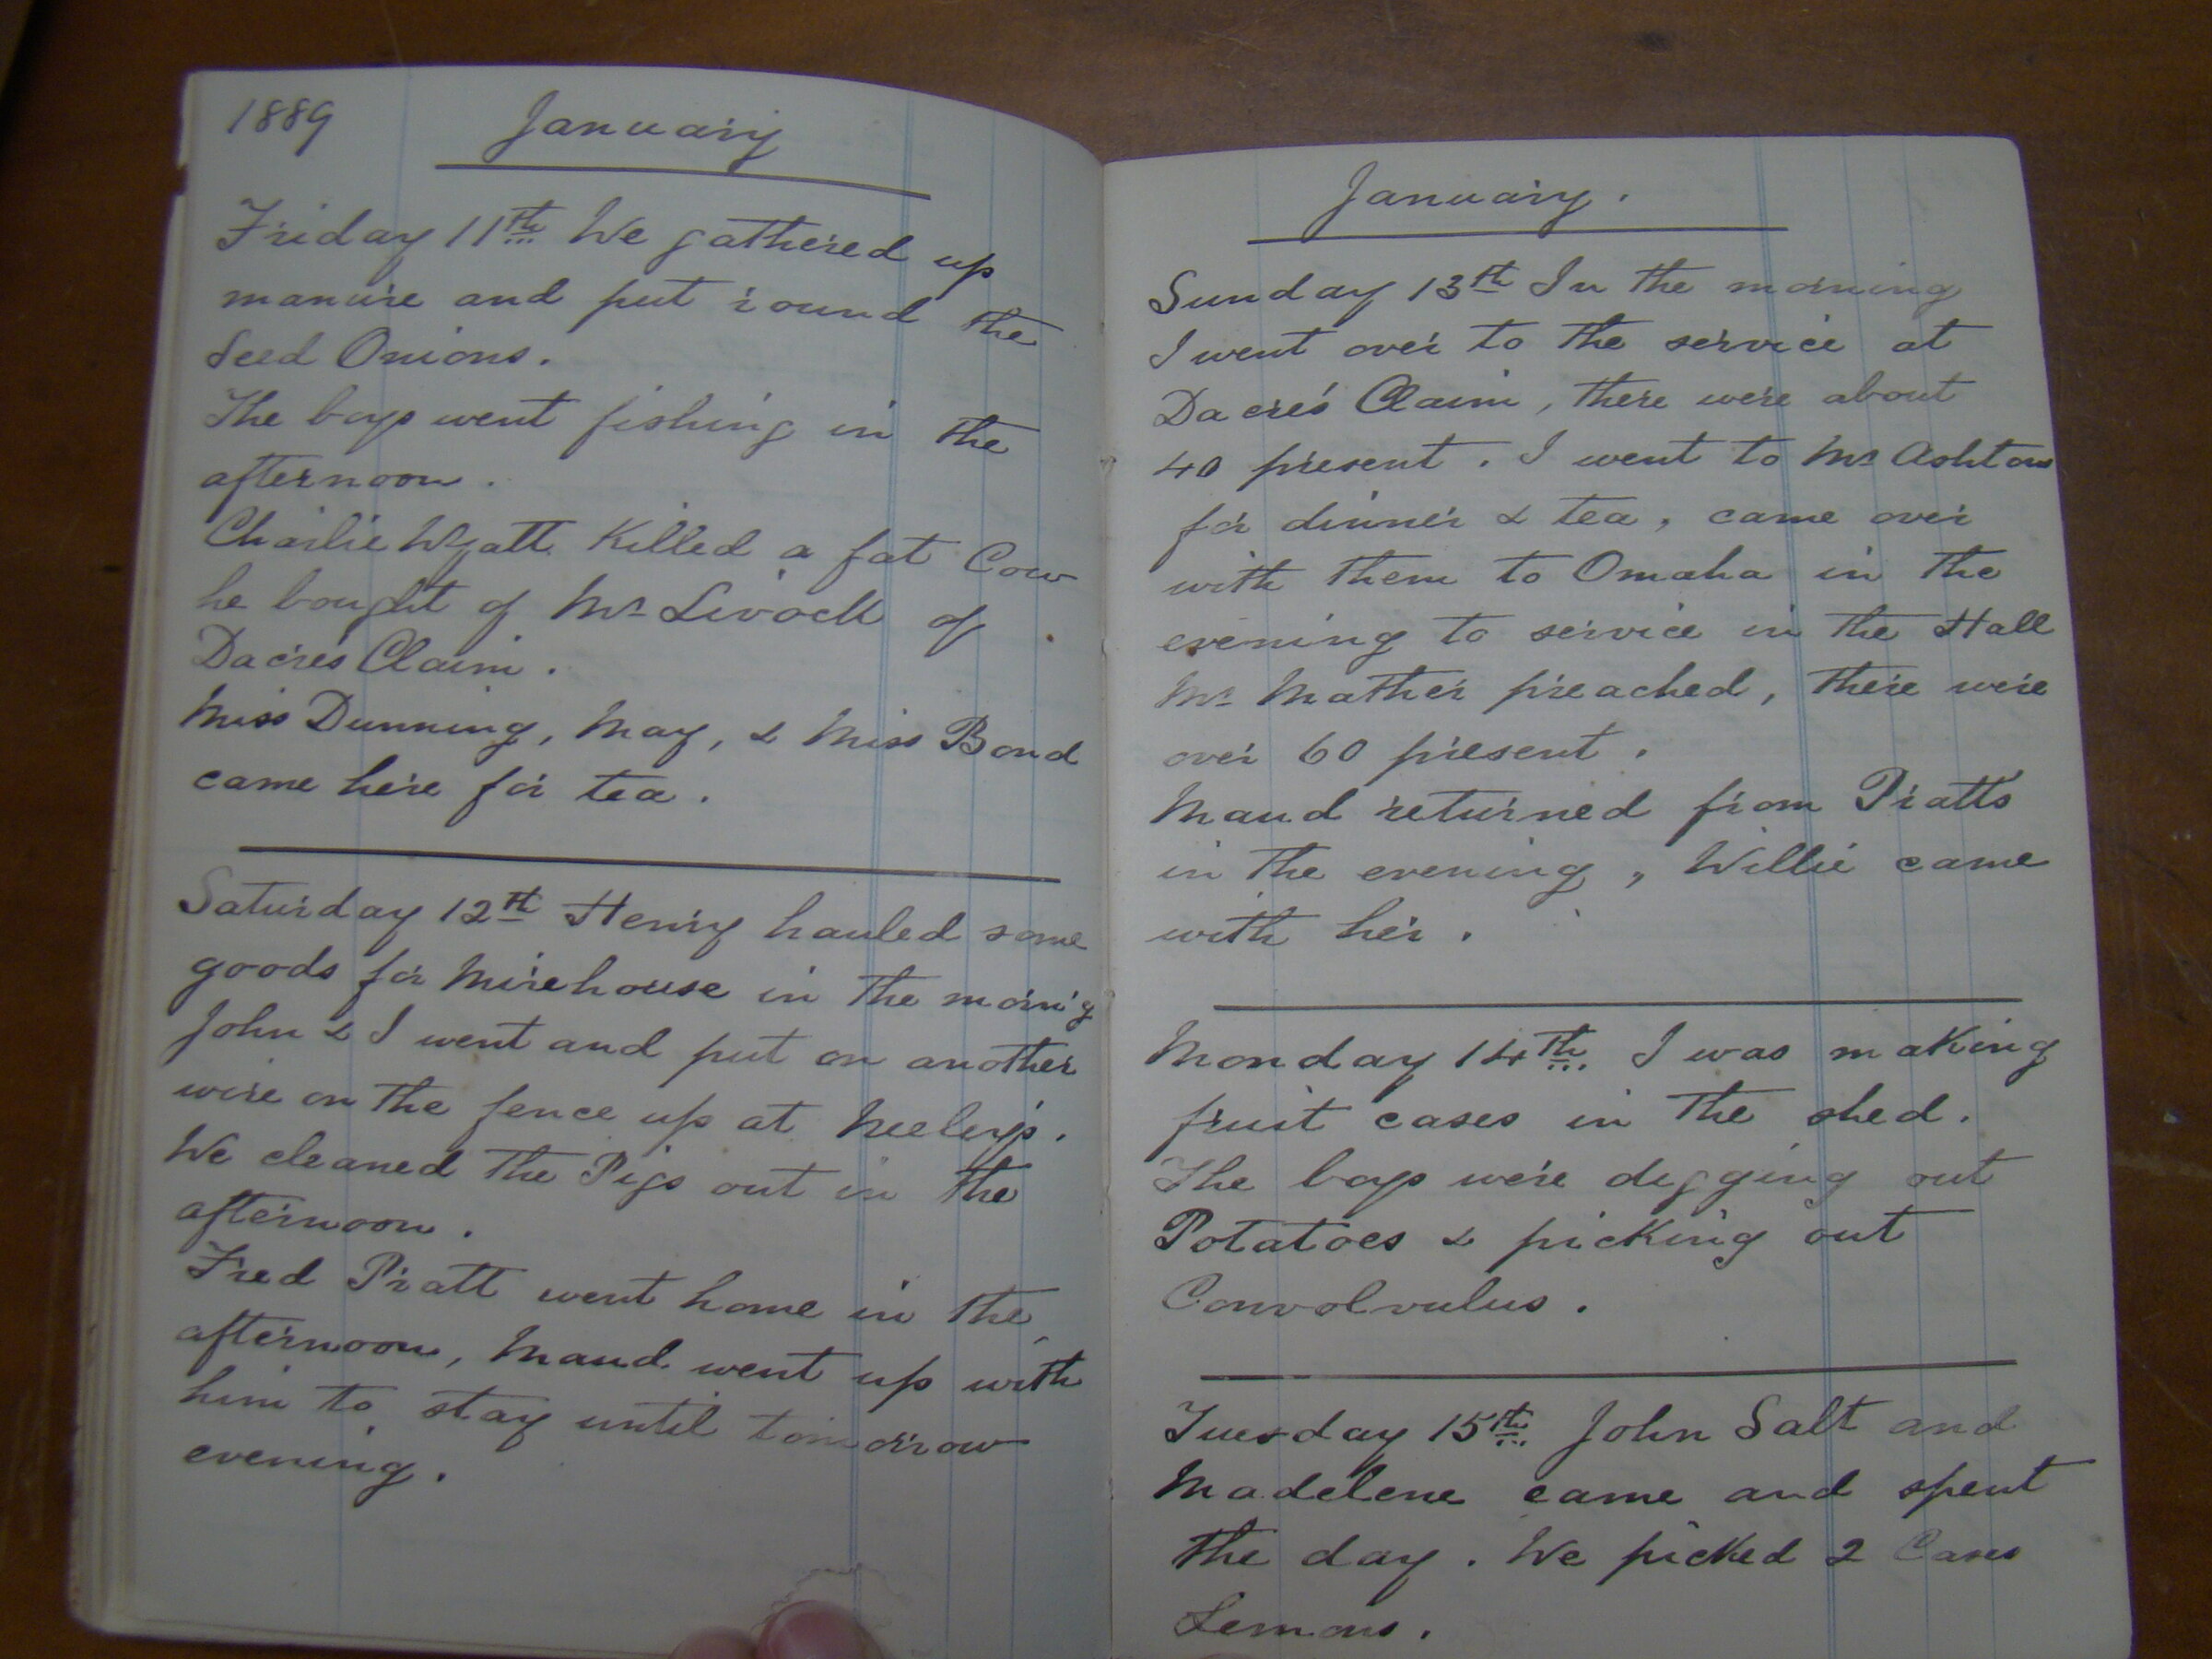 1889 January
Friday 11th We gathered up
manure and put round the
Seed Onions.
The boys went fishing in the
afternoon.
Charlie Wyatt Killed a fat Cow
he bought of Mr Livock of
Dacre's Claim.
Miss Dunning, May, & Miss Bond
came here for tea.
Saturday 12th Henry hauled some
goods for Mirehouse in the morni'g
John & I went and put on another
wire on the fence up at Neeley's.
We cleaned the Pigs out in the
afternoon.
Fred Pratt went home in the
afternoon, Maud went up with
him to stay until tomorrow
evening.
January.
Sunday 13th In the morning
I went over to the service at
Dacre's Claim, there were about
40 present. I went to Mr Ashtons
for dinner & tea, came over
with them to Omaha in the
evening to service in the Hall
Mr Mather preached, there were
over 60 present.
Maud returned from Pratts
in the evening, Willie came
with her.
Monday 14th. I was making
fruit cases in the shed.
The boys were digging out
Potatoes & picking out
Convolvulus.
Tuesday 15th John Salt and
Madelene came and spent
the day. We picked 2 Cases
Lemons.